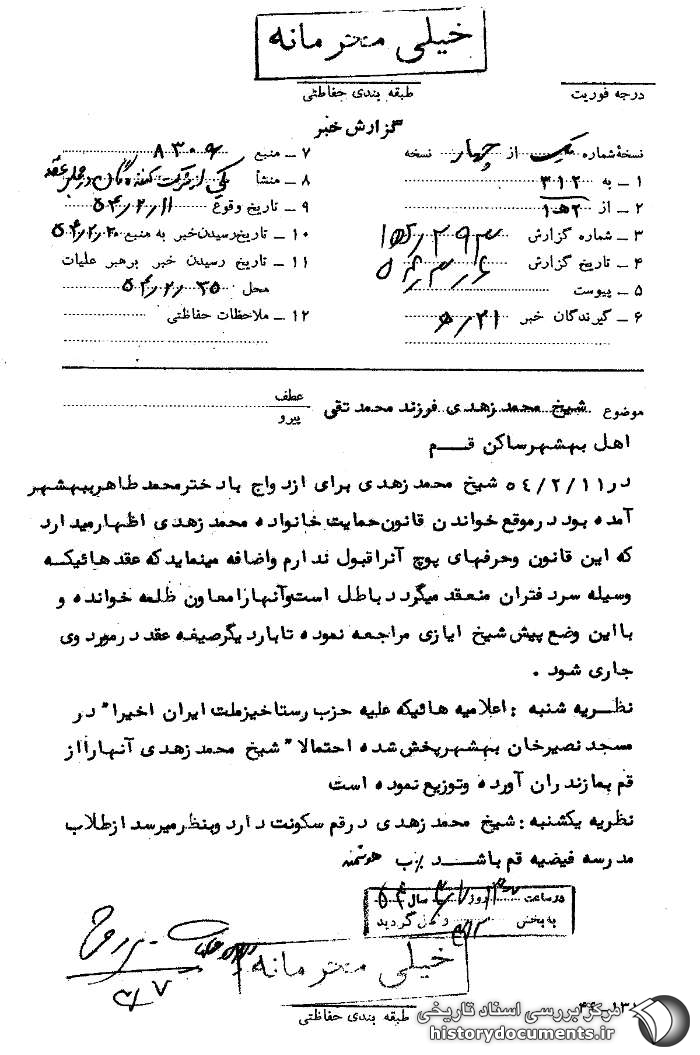 خیلی محرمانه
طبقه بندی حفاظتی
درجه فوریت
گزارش خبر
نسخهٔ شماره یک از چهار نسخه
۱ ــ به ۳۱۲
۲ ــ از ۲هـ۱
۳ ــ شماره گزارش
۴ ــ تاریخ گزارش
۵ ــ پیوست
۶ ــ گیرندگان خبر
۷ ــ منبع ۸۳۰۹
۸ ــ منشأ یکی از شرکت کنندگان در مجلس عقد
۹ ــ تاریخ وقوع ۵۴/۲/۱۱
۱۰ ــ تاریخ رسیدن خبر به منبع ۵۴/۲/۲۰
۱۱ ــ تاریخ رسیدن خبر برهبر عملیات
محل ۵۴/۲/۲۵
۱۲ ــ ملاحظات حفاظتی
موضوع شیخ محمد زهدی فرزند محمد تقی
عطف
پیرو
اهل بهشهر ساکن قـــم
در ۵۴/۲/۱۱ شیخ محمد زهدی برای ازدواج با دختر محمد طاهر ببهشهر
آمده بود در موقع خواندن قانون حمایت خانواده محمد زهدی اظهار میدارد
که این قانون وحرفهای پوچ آنرا قبول ندارم واضافه مینماید که عقد هائیکه
وسیله سرد فتران منعقد میگردد باطل است وآنها را معاون ظلمه خوانده و
با این وضع پیش شیخ ایازی مراجعه نموده تا بار دیگر صیغه عقد در مورد وی
جاری شود .
نظــریه شنبه : اعلامیه هائیکه علیه حزب رستاخیز ملت ایران اخیرا" در
مسجد نصیرخان بهشهر پخش شده احتمالا" شیخ محمد زهدی آنها را از
قم بمازندران آورده وتوزیع نموده است
نظریه یکشنبه : شیخ محمد زهدی در قم سکونت دارد وبنظر میرسد از طلاب
مدرسه فیضیه قم باشــــد ب هوشمند
در ساعت روز سال ۵۴
به بخش واصل گردید
خیلی محرمانه
طبقه بندی حفاظتی
مرکز بررسی اسناد تاریخی
historydocuments.ir